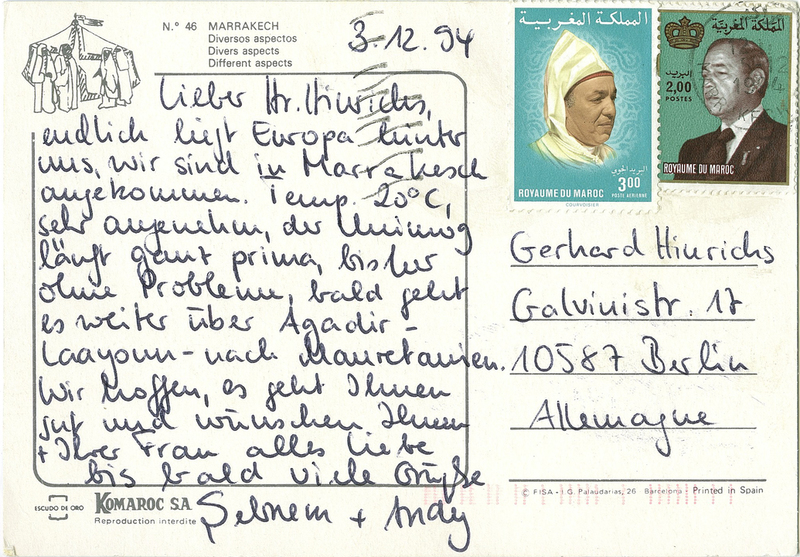 N.º 46 MARRAKECH
Diversos aspectos
Divers aspects
Different aspects
3.12.94
Lieber Hr. Hinrichs,
endlich liegt Europa hinter
uns, wir sind in Marrakesch
angekommen. Temp. 20°C,
sehr angenehm, der Unimog
läuft ganz prima, bisher
ohne Probleme, bald geht
es weiter über Agadir -
Laayoun - nach Mauretanien.
Wir hoffen, es geht Ihnen
gut und wünschen Ihnen
+ Ihrer Frau alles liebe
bis bald viele Grüße
Sebnem + Andy
ESCUDO DE ORO
KOMAROC S.A.
Reproduction interdite
المملكة المغربية
البريد الجوي
3,00
ROYAUME DU MAROC
POSTE AERIENNE
COURVOISIER
المملكة المغربية
البريد
2,00
POSTES
ROYAUME DU MAROC
Gerhard Hinrichs
Galvinistr. 17
10587 Berlin
Allemagne
© FISA - I.G. Palaudarias, 26 Barcelona Printed in Spain